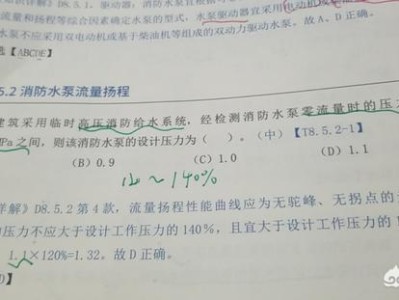 流量和扬程等综合因素确定水泵的型式，水泵驱动器宜采用电动机或
水泵不应采用双电动机或基于柴油机等组成的双动力驱动水泵。故 A、D 正确。
【ABCDE】
5.2 消防水泵流量扬程
建筑采用临时高压消防给水系统，经检测消防水泵零流量时的压
Pa 之间，则该消防水泵的设计压力为（ ）。（中）【T8.5.2-1】
(B) 0.9 (C) 1.0 (D) 1.1
120 ~ 140%
详解》D8.5.2 第 4 款，流量扬程性能曲线应为无驼峰、无拐点的
的压力不应大于设计工作压力的 140%，且宜大于设计工作压力的
1.1×120%=1.32。故 D 正确。
D】